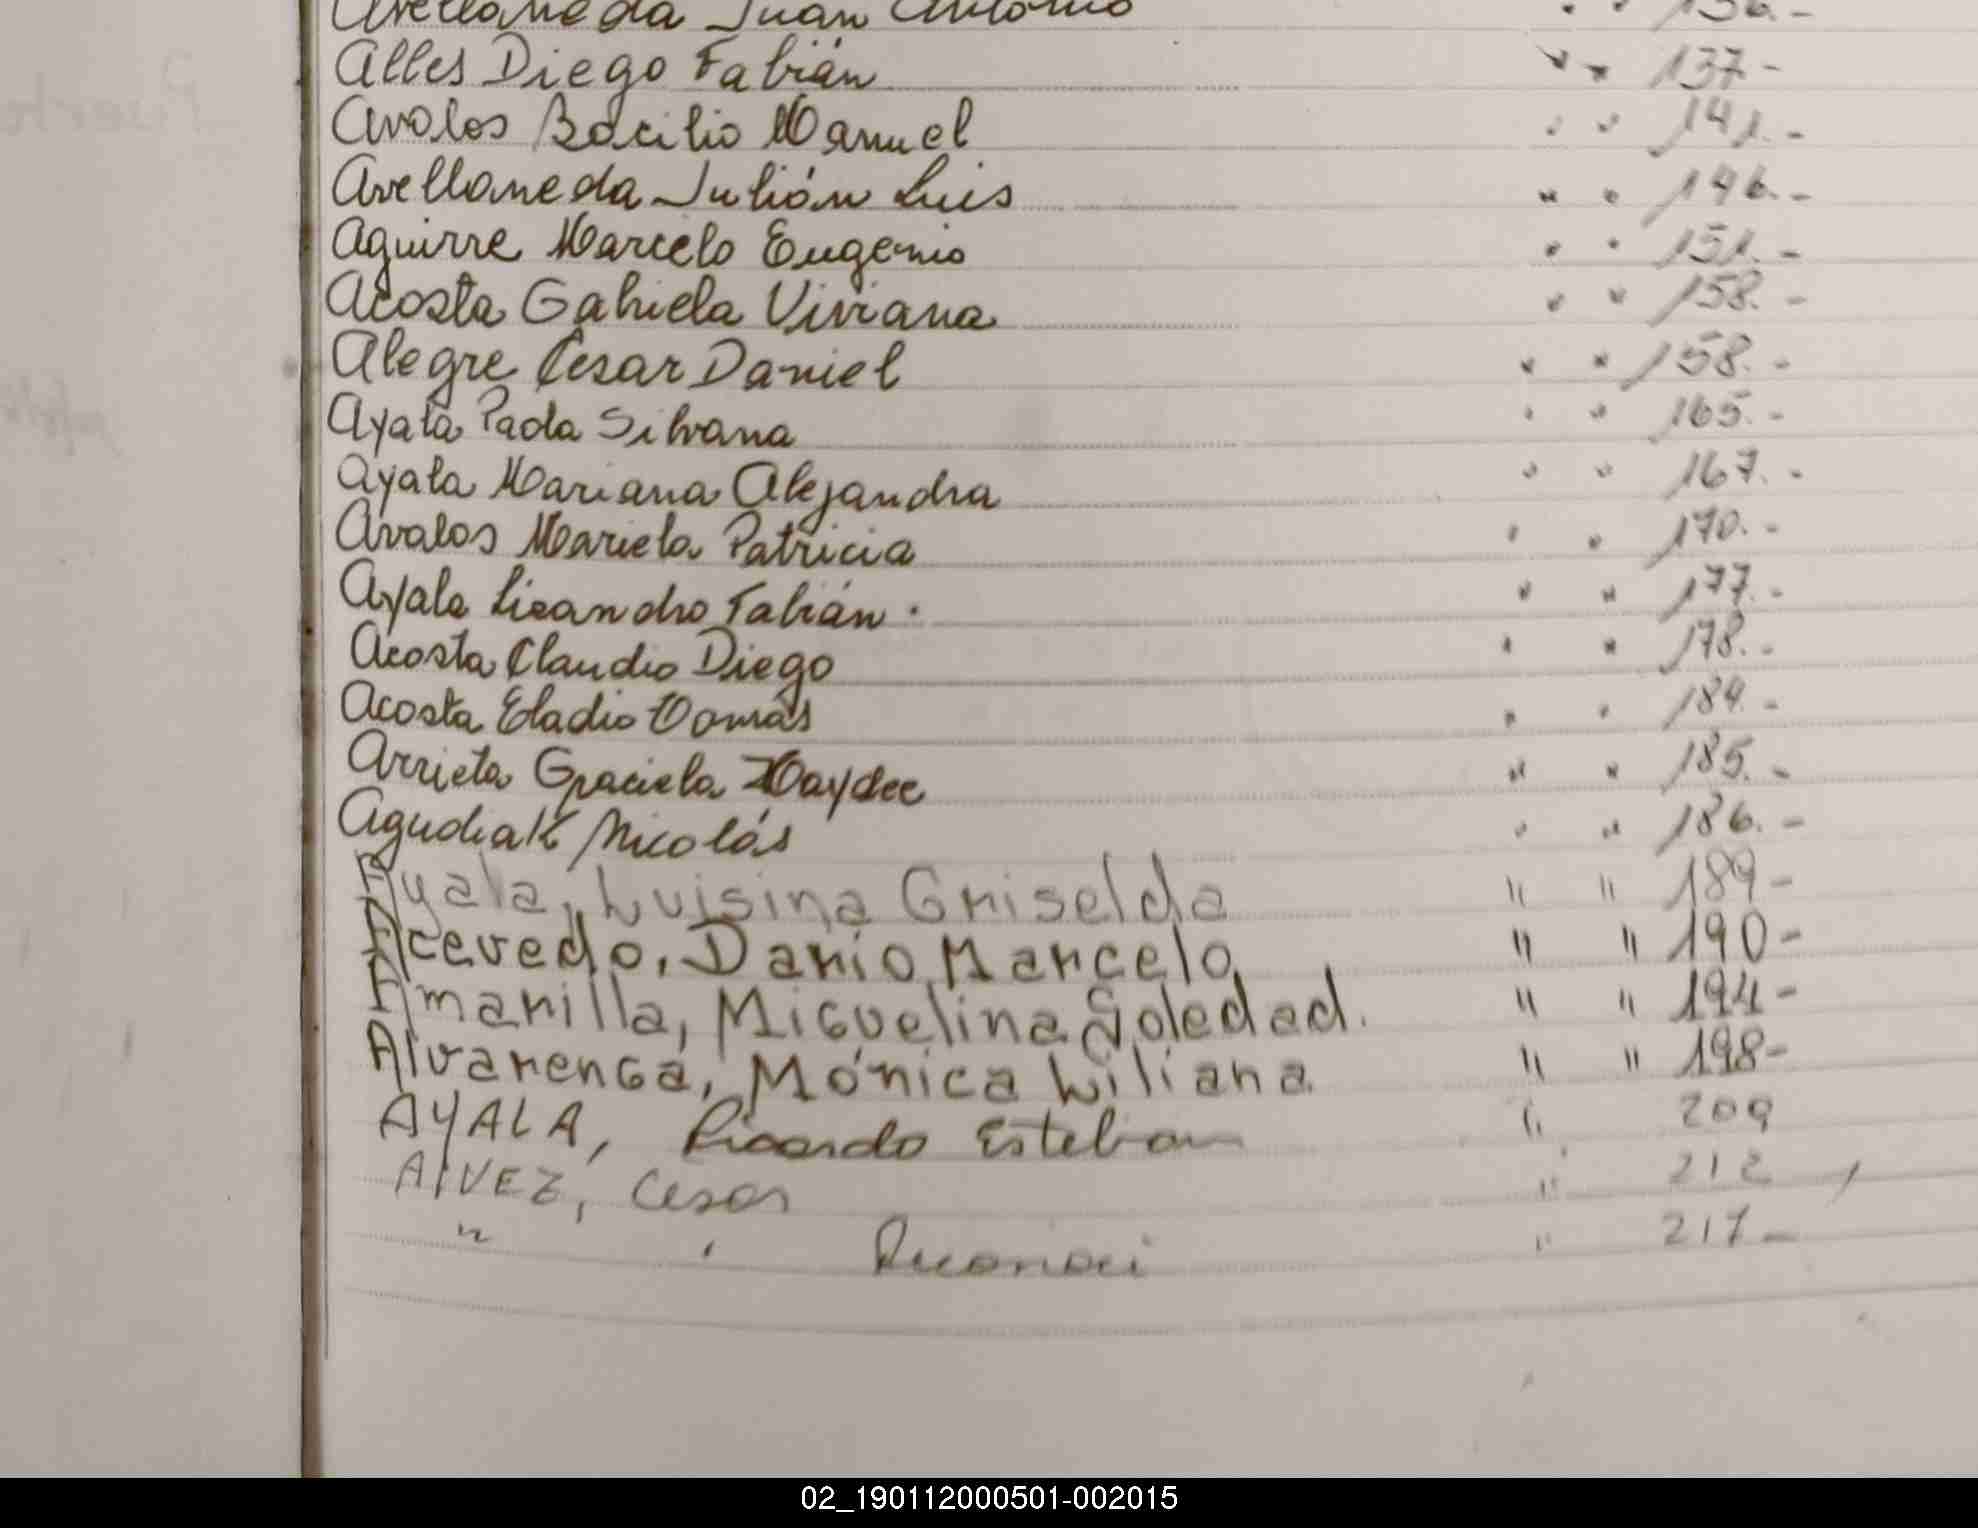 Avellaneda Juan Antonio " " 136.-
Alles Diego Fabián " " 137-
Avalos Bacilio Manuel " " 141.-
Avellaneda Julián Luis " " 146.-
Aguirre Marcelo Eugenio " " 151.-
Acosta Gabriela Viviana " " 158.-
Alegre Cesar Daniel " " 158.-
Ayala Paola Silvana " " 165.-
Ayala Mariana Alejandra " " 167.-
Avalos Mariela Patricia " " 170.-
Ayala Lisandro Fabián. " " 177.-
Acosta Claudio Diego " " 178.-
Acosta Eladio Tomás " " 184.-
Arrieta Graciela Haydee " " 185.-
Agudiak Nicolás " " 186.-
Ayala, Luisina Griselda " " 189-
Acevedo, Dario Marcelo " " 190-
Amarilla, Miguelina Soledad. " " 194-
Alvarenga, Mónica Liliana " " 198-
AYALA, Ricardo Esteban " 209
AlVEZ, Cesar " 212
" " 217-
02_190112000501-002015